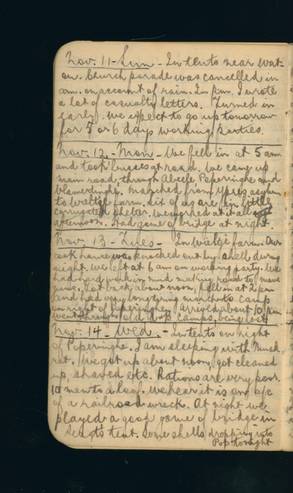 Nov. 11 - Sun - In tents near Wat-
ou. Church parade was cancelled in
a.m. on account of rain. In p.m. I wrote
a lot of casualty letters. Turned in
early. We expect to go up tomorrow
for 5 or 6 days working parties.
Nov. 12 - Mon - We fell in at 5 am
and took buses at road. We came up
main road through Abeele Poperinghe and
Vlamertinghe. Marched from Ypres
to Wieltje farm. Six of us are in little
corrugated shelter. We worked at it all
afternoon. Had game of bridge at night.
Nov. 13 - Tues - In Wieltje farm. Our
cook house was knocked out by shell during
night. We left at 6 am on working party. We
had hard job in mud making road to new
guns. Got back about noon, fell in at 2 p.m.
and had very long tiring march to camp
on right of Poperinghe, arrived about 10 p.m.
Nov. 14. Wed. - In tents on right
of Poperinghe. I am sleeping with Muck
ret. We got up about noon, got cleaned
up, shaved etc. Rations are very poor
10 men to a loaf. We hear it is on a/c
of a railroad wreck. At night we
played a good game of bridge in
Sergts tent. Some shells dropping into
Pop tonight